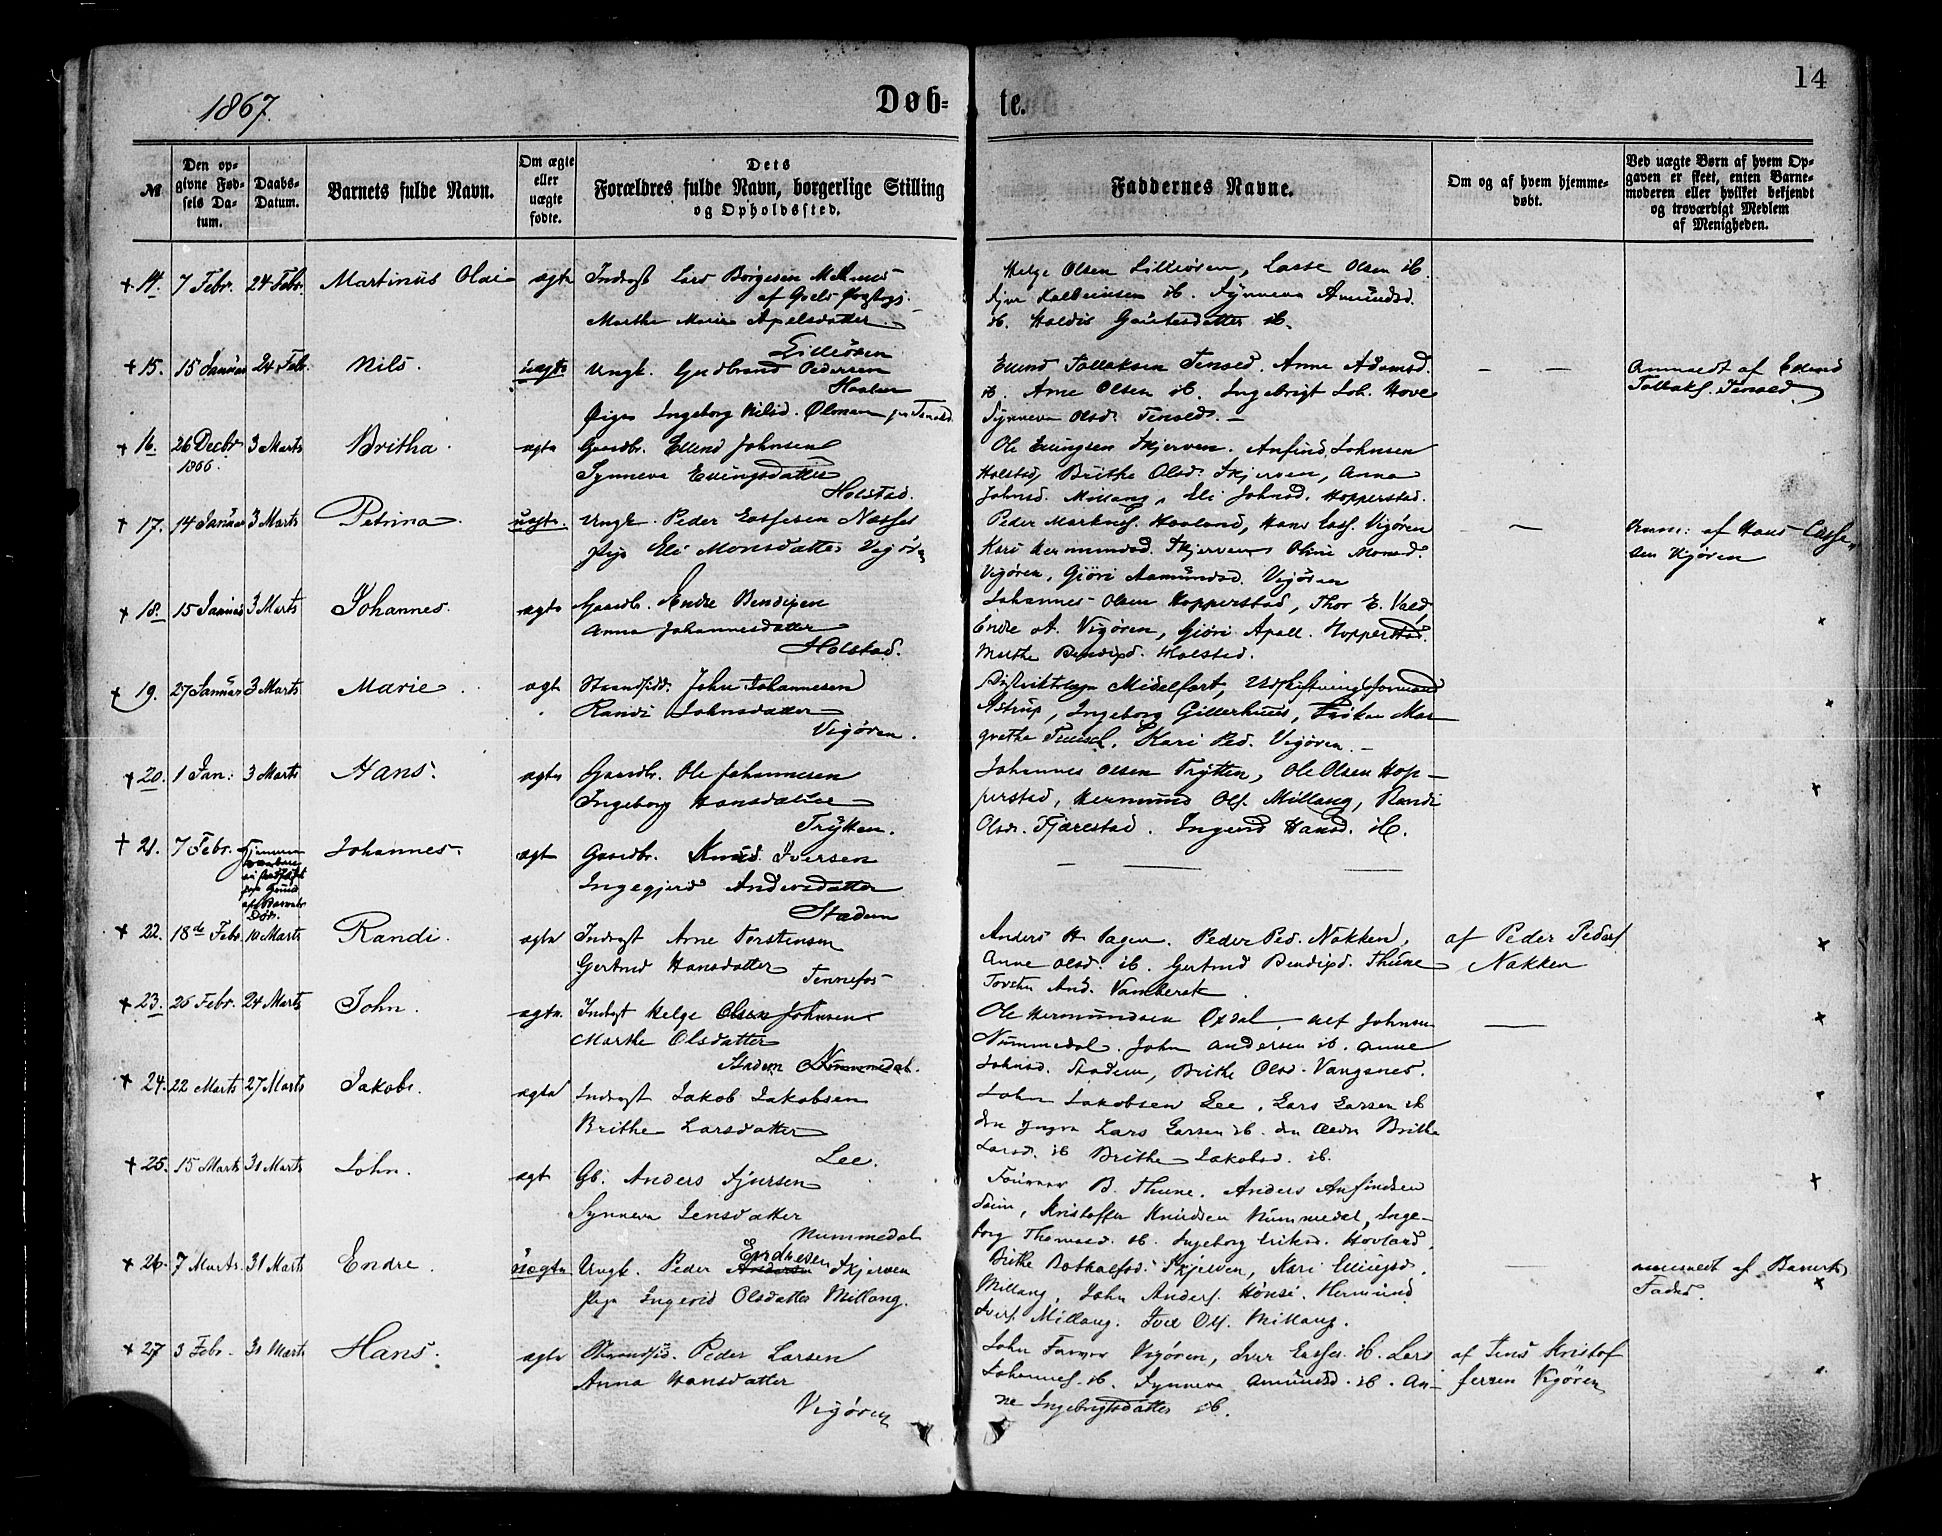 14
1867.
Døb= te.
№
Den op=
givne Fød=
sels Da=
tum.
Daabs=
Datum.
Barnets fulde Navn.
Om ægte
eller
uægte
fødte.
Dets
Forældres fulde Navn, borgerlige Stilling
og Opholdssted.
Faddernes Navne.
Om og af hvem hjemme=
døbt.
Ved uægte Børn af hvem Op=
gaven er skeet, enten Barne=
moderen eller hvilket bekjendt
og troværdigt Medlem
af Menigheden.
+ 14. 7 Febr. 24 Febr. Martinus Olai ægte Indregt Lars Børgesen
Marthe Marie Apelsdatter
Lilleøren
Helge Olsen Lilleøren, Lasse Olsen ib.
ib. Synneva Amundsd.
ib. Haldis Gautesdatter ib.
+ 15. 15 Januar 24 Feb. Nils. uægte Ungk. Gudbrand Pedersen
Pige Ingeborg Nilsd.
Ellend Tollaksen Tenold. Anne Adamsd.
ib. Arne Olsen ib. Ingebrigt Joh. Hove
Synneva Olsd. Tenold. —
— —
Anmeldt af Ellend
Tollaks. Tenold.
+ 16. 26 Decbr 3 Marts Britha. ægte Gaardbr. Ellend Johnsen
1866.
Synneva Ellingsdatter
Holstad.
Ole Ellingsen Skjerven. Anfind Johnsen
Holstad, Brithe Olsd. Skjerven, Anna
Johnsd. Millang, Eli Johnsd. Hopperstad.
+ 17. 14 Januar 3 Marts Petrina. uægte. Ungk. Peder Lassesen Næsses
Pige Eli Monsdatter Vigøren
Peder Markus. Hovland, Hans Lass. Vigøren
Kari Hermundsd. Skjerven, Oline Monsd.
Vigøren, Gjöri Aamundsd. Vigøren
—
Anm: af Hans Lasse
sen Vigøren
+ 18. 15 Januar 3 Marts Johannes. ægte Gaardbr. Endre Bendixen
Anna Johannesdatter
Holstad.
Johannes Olsen Hopperstad, Thor E. Vold,
Endre A. Vigøren, Gjöri Apall. Hopperstad.
Marthe Bendixd. Holstad.
+ 19. 27 Januar 3 Marts Marie. ægt Strandsidd. John Johannesen
Randi Johnsdatter
Vigøren.
Distriktslæge Midelfart, Udskiftningsformand
Astrup, Ingeborg Gillerhuus, Frøken Mar
grethe Kari Ped. Vigøren. —
+ 20. 1 Jan: 3 Marts Hans. ægte Gaardbr. Ole Johannesen
Ingeborg Hansdatter
Trytten.
Johannes Olsen Trytten, Ole Olsen Hop—
perstad, Hermund Ols. Millang, Randi
Olsdr. Fjærestad. Ingerid Hansd. ib.
+ 21. 7 Febr. Johannes. ægt Gaardbr. Knud Iversen
Ingegjerd Andersdatter
Stadem
— —
+ 22. 18de Febr. 10 Marts Randi. ægte Indregt Arne Torstensen
Gertrud Hansdatter
Tennefos
Anders H. Pagen. Peder Ped. Nakken,
Anne Olsd. ib. Gertrud Bendixd. Thune
Torsten And.
af Peder Peders.
Nakken
+ 23. 26 Febr. 24 Marts John. ægte. Indregt Helge Olsen Johnsen
Marthe Olsdatter
Stadem Nummedal.
Ole Hermundsen Oxdal, Alf Johnsen
Nummedal. John Andersen ib. Anne
Johnsd. Stadem, Brithe Olsd. Vangsnes.
—
+ 24. 22 Marts 27 Marts Jakob. ægte Indregt Jakob Jakobsen
Brithe Larsdatter
Lee.
John Jakobsen Lee, Lars Larsen ib
den yngre Lars Larsen ib. den Ældre Brithe
Larsd. ib Brithe Jakobsd. ib.
+ 25. 15 Marts 31 Marts John. ægt Gb. Anders Sjursen
Synneva Jensdatter
Nummedal
B. Thune. Anders Anfindsen
Kristoffer Knudsen Nummedal, Inge—
borg Thomasd. ib. Ingeborg Eriksd. Hovland.
+ 26. 7 Marts. 31 Marts Endre. uægte Ungk. Peder Endresen Skjerven
Pige Ingerid Olsdatter Millang.
Brithe Botholfsd. Skjerven, Kari Ellingsd.
Millang, John Anders. Hønsi. Hermund
Ivers. Millang. Iver Ols. Millang.
anmeldt af Barnets
Fader.
+ 27 3 Febr. 31 Marts Hans. ægte Strandsid. Peder Larsen
Anna Hansdatter
Vigøren
John Vigøren, Iver Lasses. ib. Lars
Johannes. ib. Synneva Amundsd. ib. An—
ne Ingebrigtsdatter ib.
af Jens Kristof
fersen Vigøren